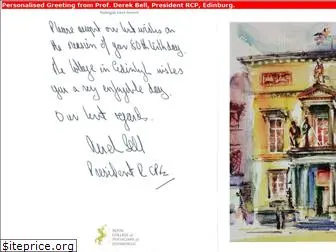 Personalised Greeting from Prof. Derek Bell, President RCP, Edinburg.
Please accept our best wishes on
the occasion of your 60th birthday.
The College in Edinburgh wishes
you a very enjoyable day.
Our best regards.
Derek Bell
President RCPE
ROYAL
COLLEGE of
PHYSICIANS of
EDINBURGH
sitepricechecker.com